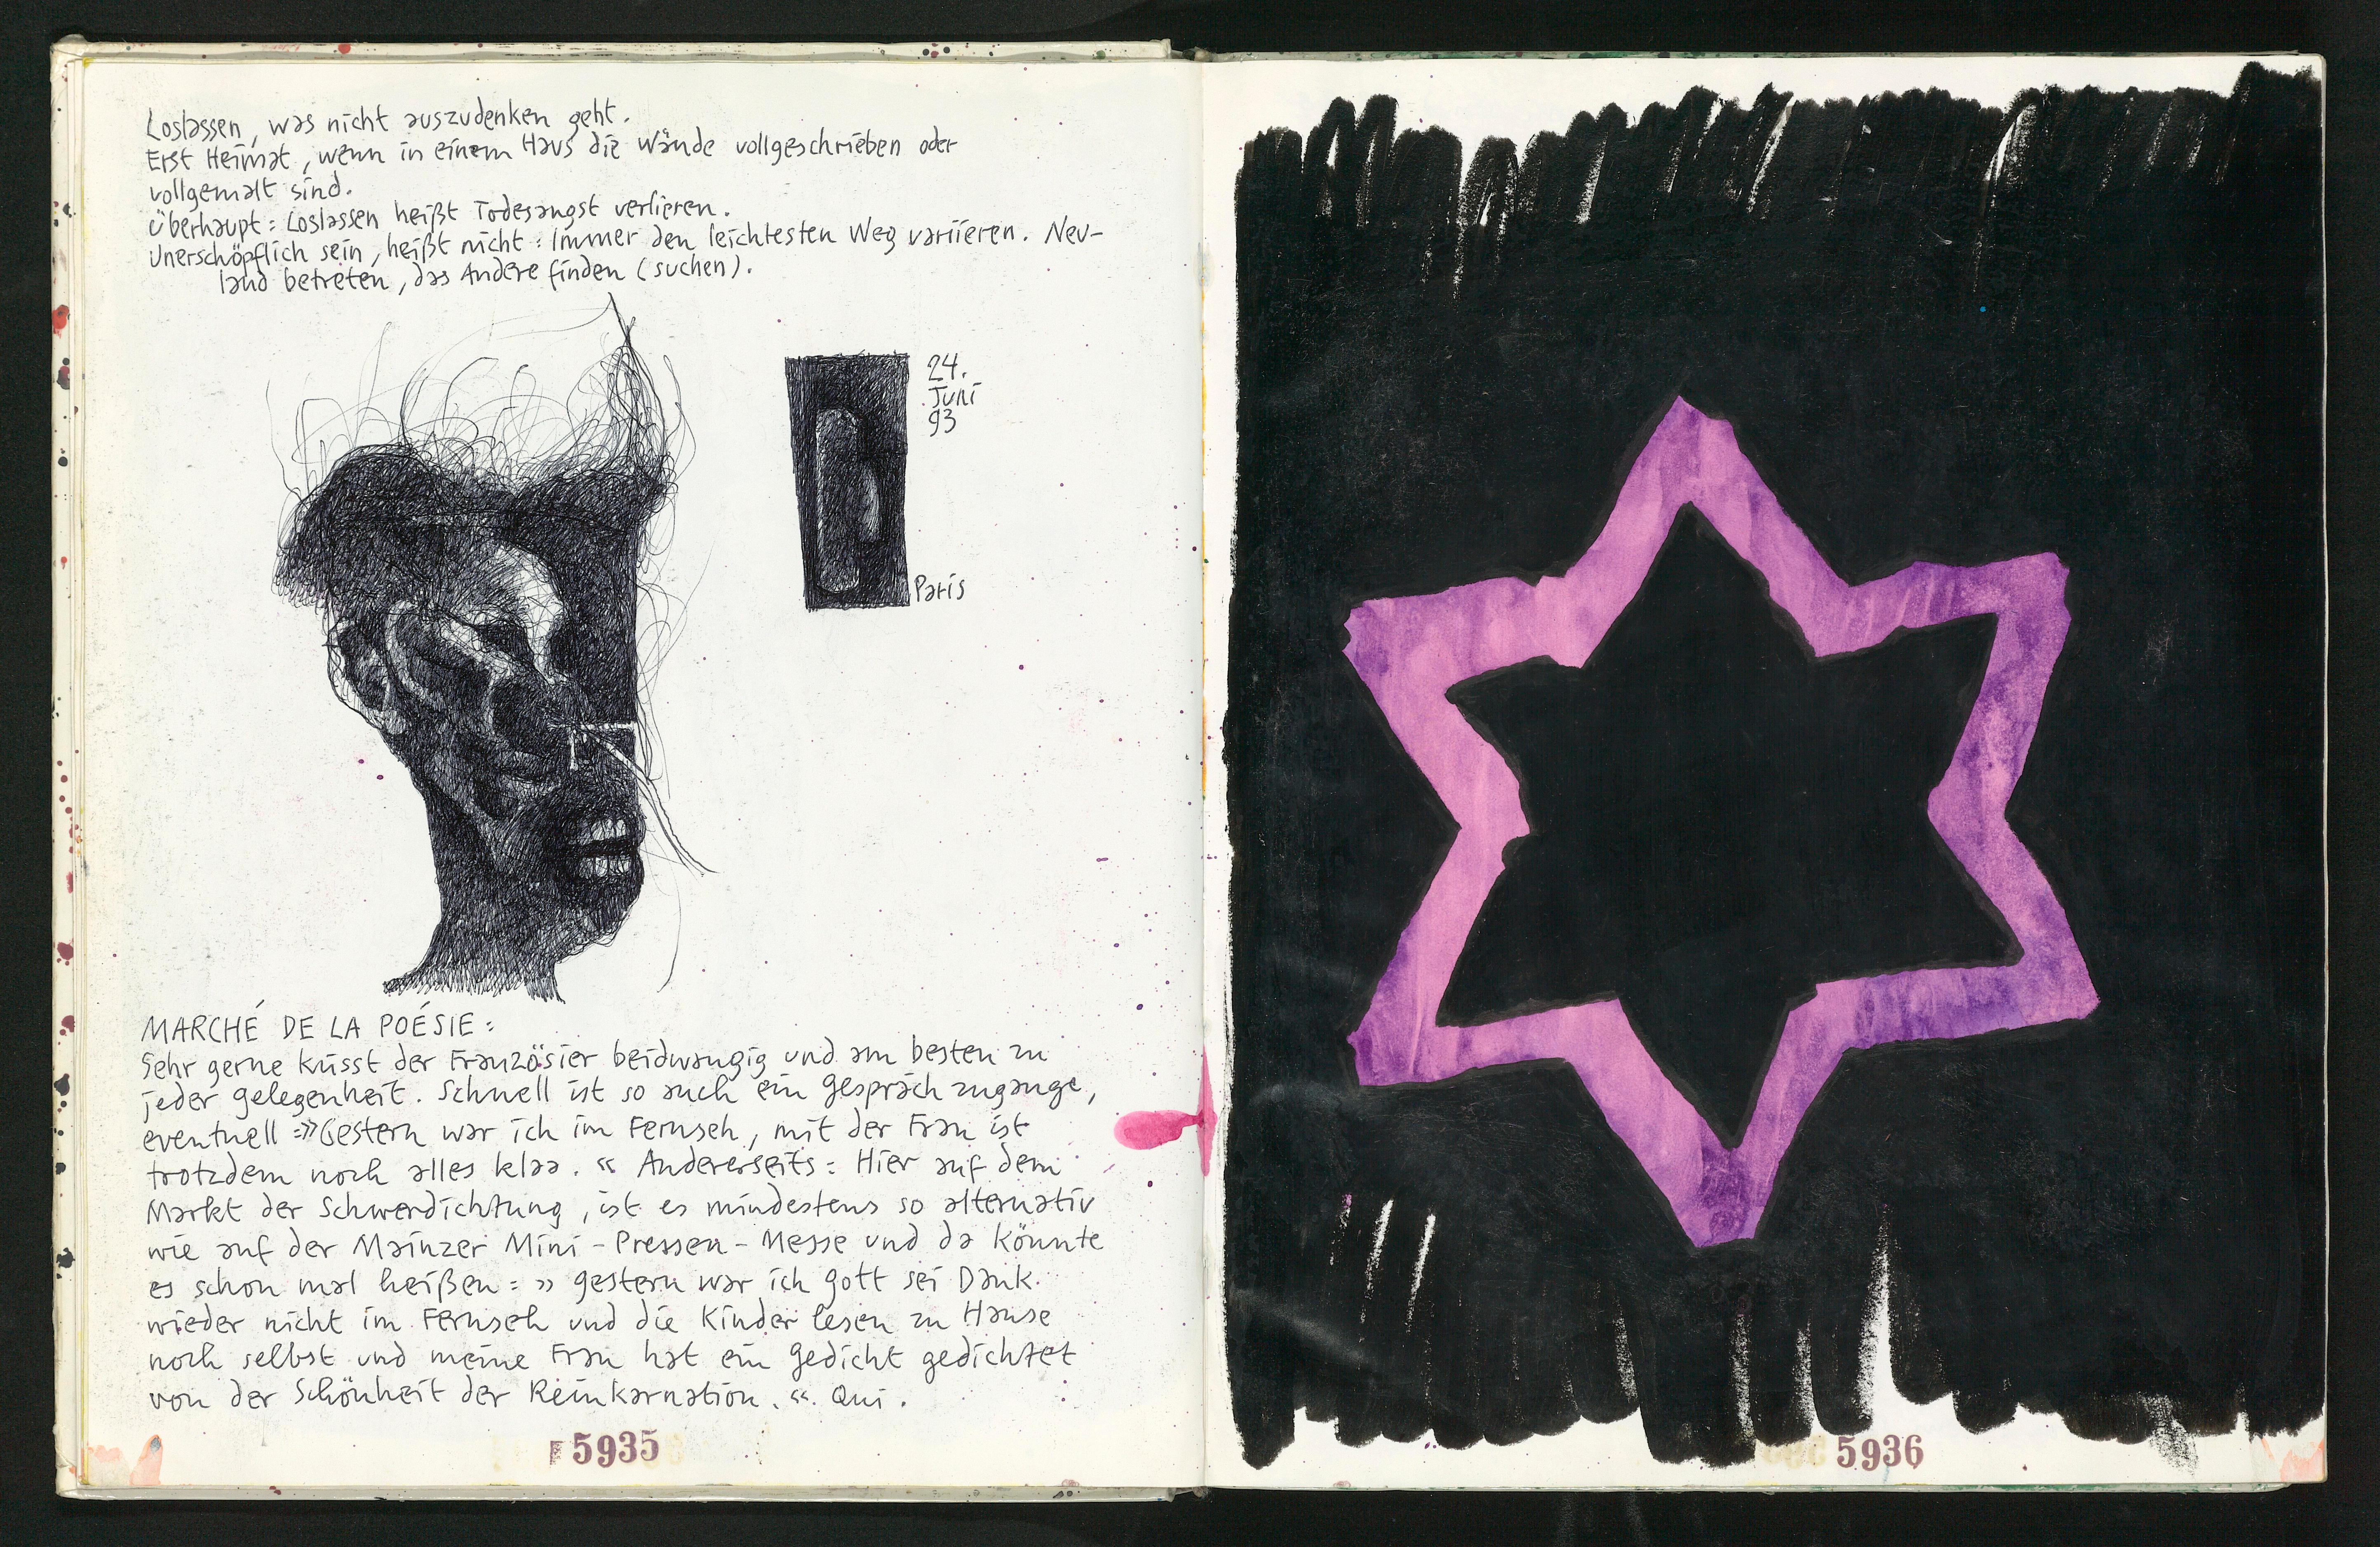 Loslassen, was nicht auszudenken geht.
Erst Heimat, wenn in einem Haus die Wände vollgeschrieben oder
vollgemalt sind.
Überhaupt: Loslassen heißt Todesangst verlieren.
Unerschöpflich sein, heißt nicht: Immer den leichtesten Weg variieren. Neu-
land betreten, das Andere finden (suchen).
24.
Juni
93
Paris
MARCHÉ DE LA POÉSIE:
Sehr gerne küsst der Französier beidwangig und am besten zu
jeder Gelegenheit. Schnell ist so auch ein Gespräch zugange,
eventuell: »Gestern war ich im Fernseh, mit der Frau ist
trotzdem noch alles klaa.« Andererseits: Hier auf dem
Markt der Schwerdichtung, ist es mindestens so alternativ
wie auf der Mainzer Mini-Pressen-Messe und da könnte
es schon mal heißen: »Gestern war ich Gott sei Dank
wieder nicht im Fernseh und die Kinder lesen zu Hause
noch selbst und meine Frau hat ein Gedicht gedichtet
von der Schönheit der Reinkarnation.«. Qui.
5935
5936